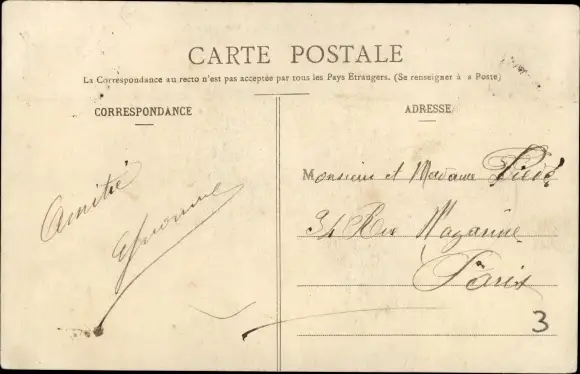 CARTE POSTALE
La Correspondance au recto n'est pas acceptée par tous les Pays Etrangers. (Se renseigner à a Poste)
CORRESPONDANCE
Amitié
Yvonne
ADRESSE
Monsieur et Madame
34 Rue Mazarine
Paris
3